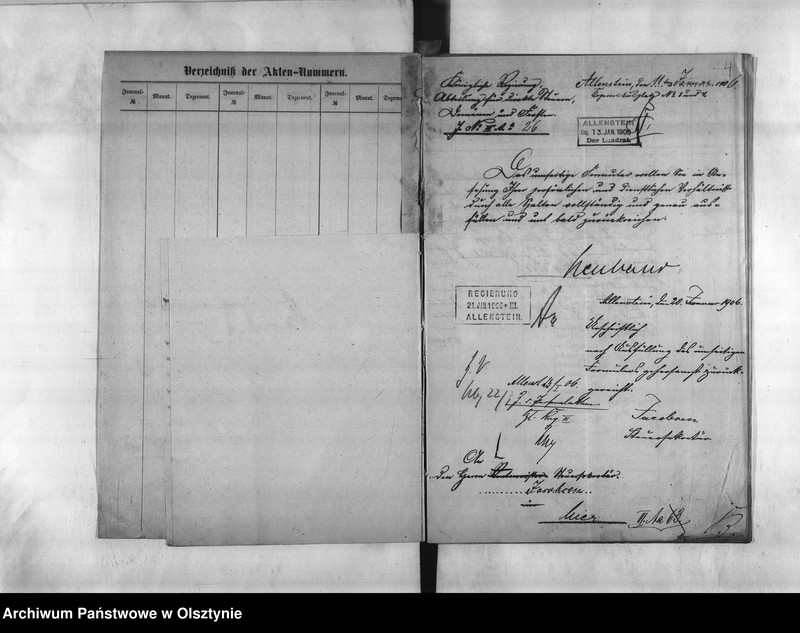 Verzeichniß der Akten-Nummern.
Journal-№ Monat. Dezernent. Journal-№ Monat. Dezernent. Journal-№ Monat. Dezern
Königliche Regierung,
Abteilung für direkte Steuern,
Domänen und Forsten.
J. №
26
Allenstein, den 11. Januar 1906.
ALLENSTEIN
13. JAN. 1906
Der Landrat
Das umseitige Formular wollen Sie in An-
sehung Ihrer persönlichen und dienstlichen Verhältnisse
durch alle Spalten vollständig und genau aus-
füllen und uns bald zurückreichen.
REGIERUNG
21. JAN. 1906
ALLENSTEIN.
Allenstein, den 20. Januar 1906.
Urschriftlich
nach Ausfüllung des umseitigen
Formulars gehorsamst zurück-
gereicht.
Jacobsen
Steuersekretär
An
den Herrn Steuersekretär
Jacobsen
hier
Archiwum Państwowe w Olsztynie